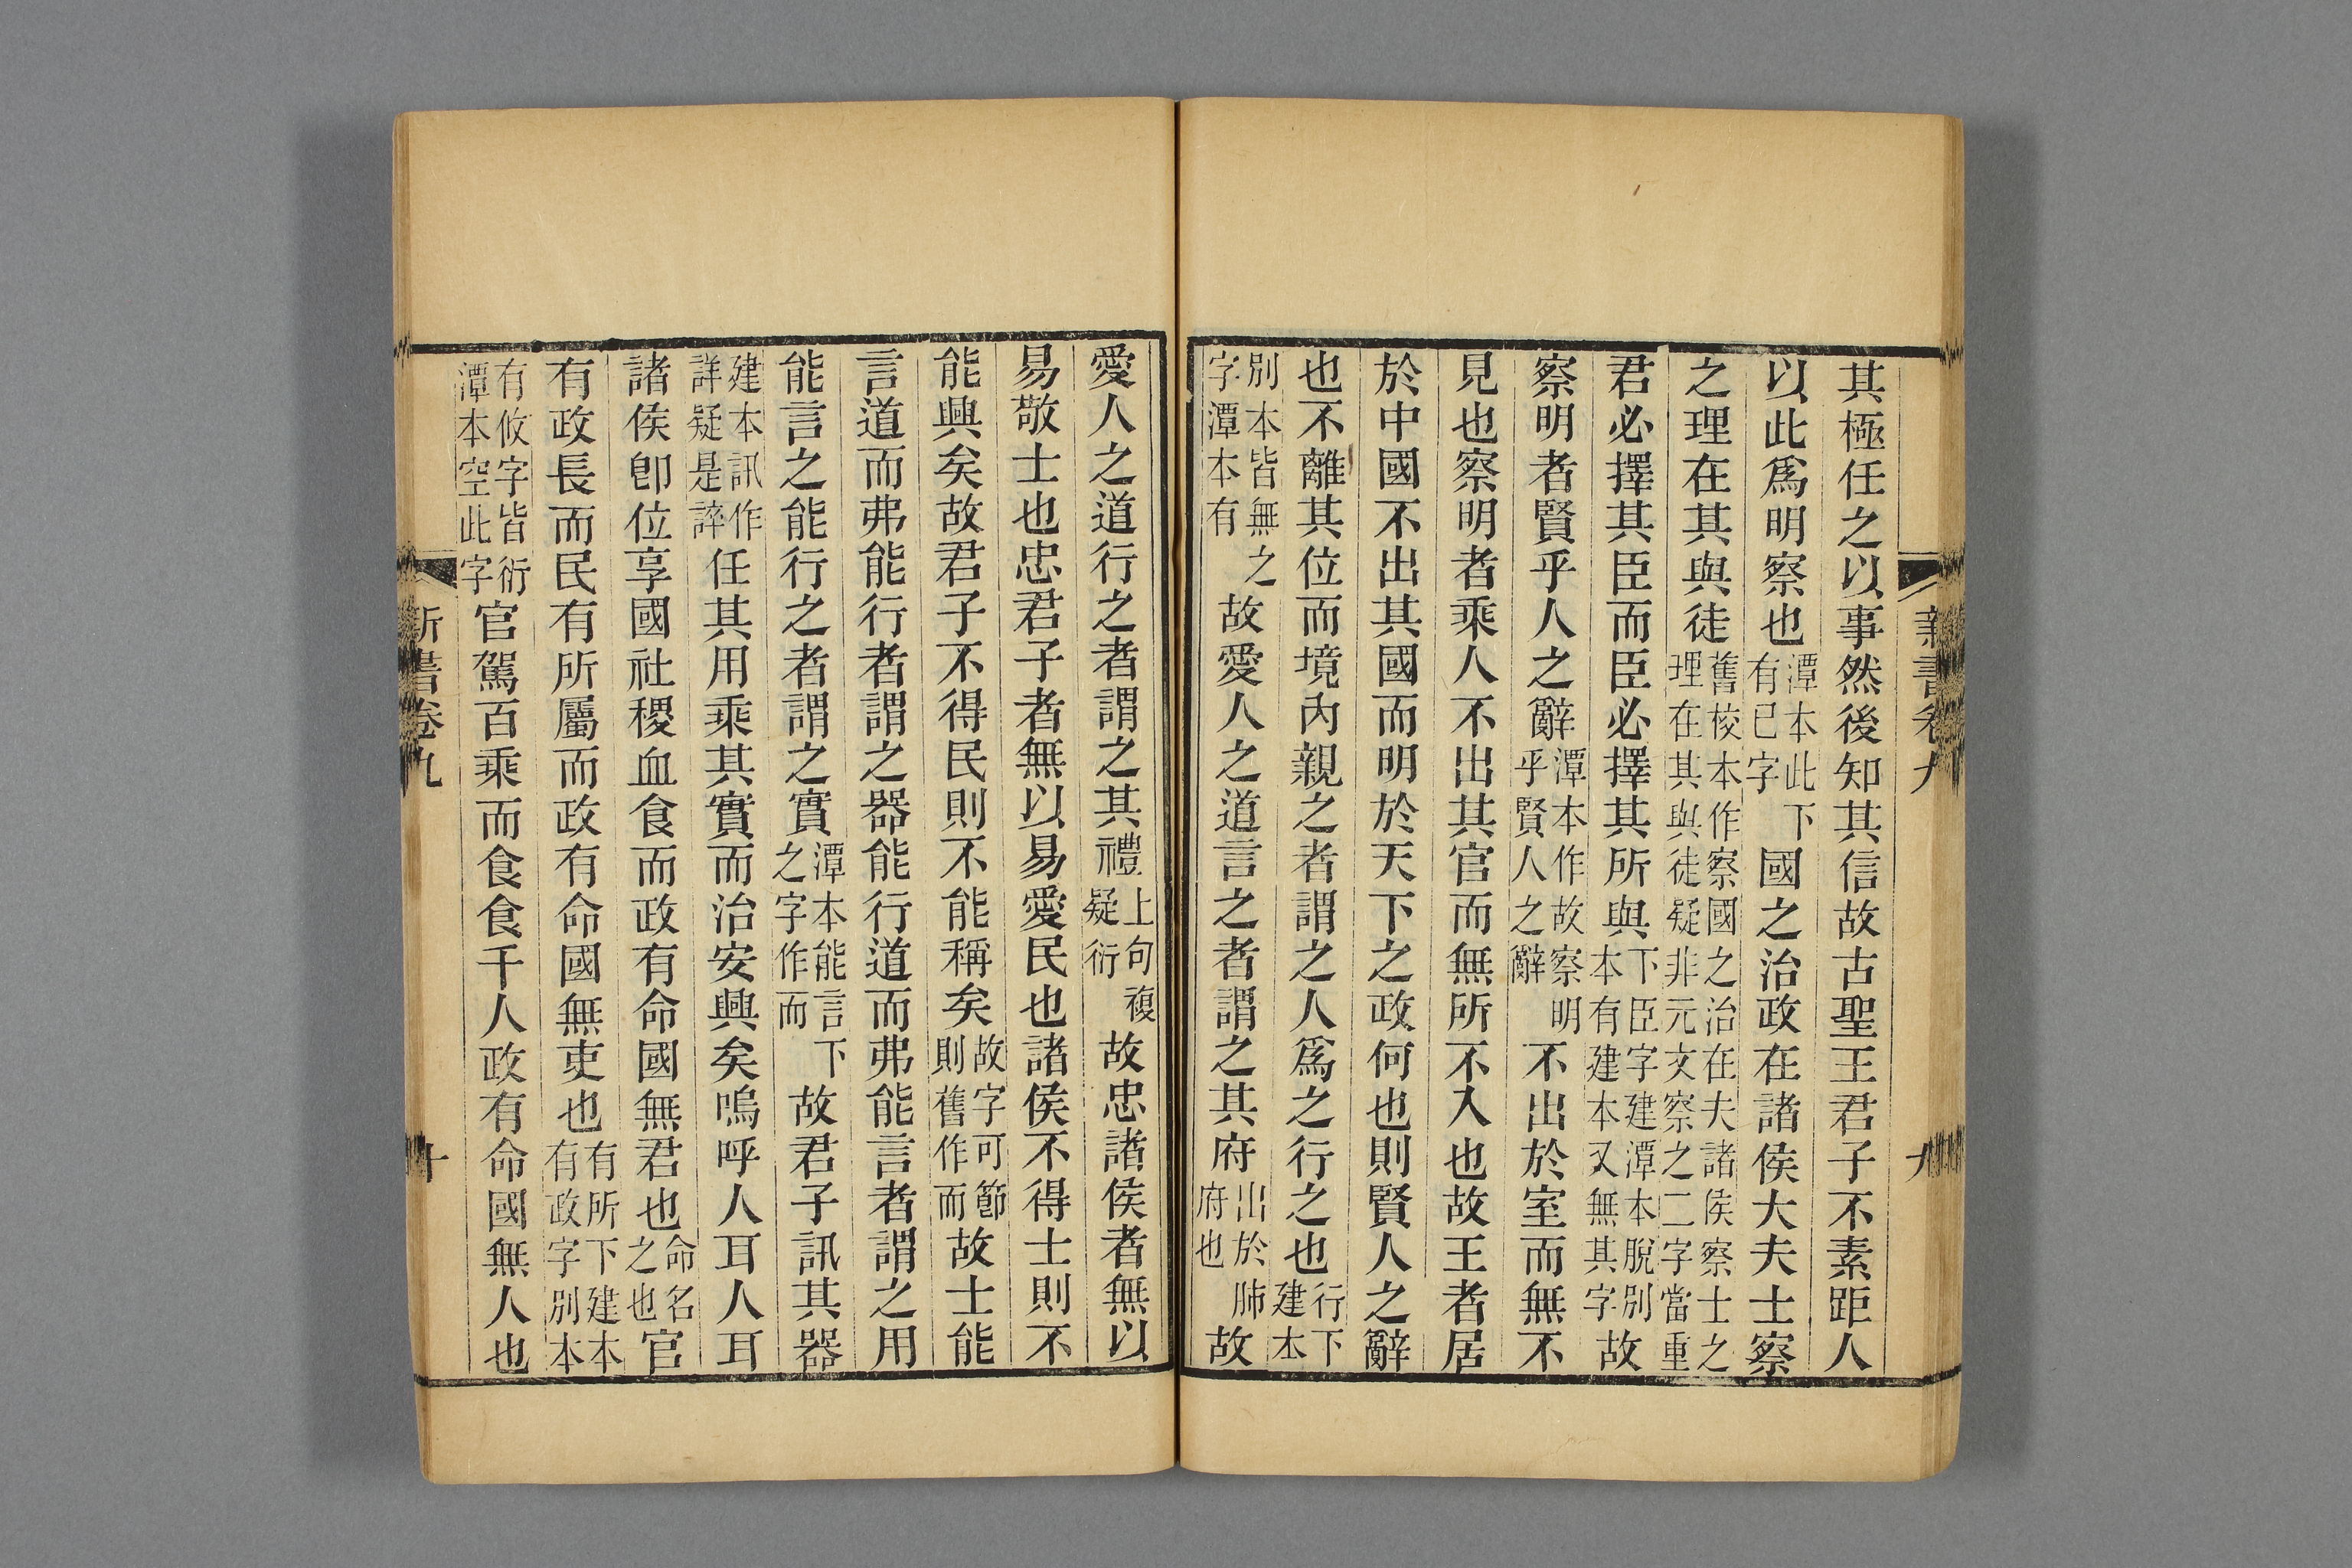 新書卷九
九
其極任之以事然後知其信故古聖王君子不素距人
以此爲明察也潭本此下有已字國之治政在諸侯大夫士察
之理在其與徒舊校本作察國之治在夫諸侯察士之理在其與徒疑非元文察之二字當重
君必擇其臣而臣必擇其所與下臣字建潭本脫別本有建本又無其字故
察明者賢乎人之辭潭本作故察明乎賢人之辭不出於室而無不
見也察明者乘人不出其官而無所不入也故王者居
於中國不出其國而明於天下之政何也則賢人之辭
也不離其位而境內親之者謂之人爲之行之也行下建本
別本皆無之字潭本有故愛人之道言之者謂之其府出於肺府也故
愛人之道行之者謂之其禮上句複疑衍故忠諸侯者無以
易敬士也忠君子者無以易愛民也諸侯不得士則不
能興矣故君子不得民則不能稱矣故字可節則舊作而故士能
言道而弗能行者謂之器能行道而弗能言者謂之用
能言之能行之者謂之實潭本能言下之字作而故君子訊其器
建本訊作詳疑是誶任其用乘其實而治安興矣嗚呼人耳人耳
諸侯卽位享國社稷血食而政有命國無君也命名之也官
有政長而民有所屬而政有命國無吏也有所下建本有政字別本
有攸字皆衍潭本空此字官駕百乘而食食千人政有命國無人也
新書卷九
十